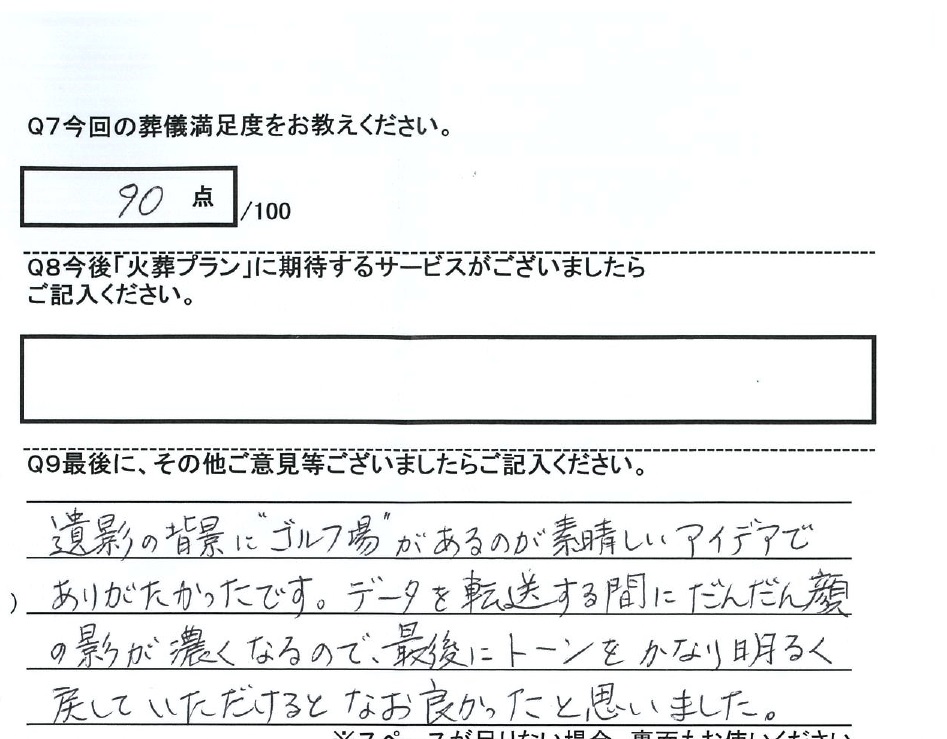 Q7今回の葬儀満足度をお教えください。
90 点 /100
Q8今後「火葬プラン」に期待するサービスがございましたら
ご記入ください。
Q9最後に、その他ご意見等ございましたらご記入ください。
遺影の背景に"ゴルフ場"があるのが素晴しいアイデアで
ありがたかったです。データを転送する間にだんだん顔
の影が濃くなるので、最後にトーンをかなり明るく
戻していただけるとなお良かったと思いました。
※スペースが足りない場合、裏面もお使いください